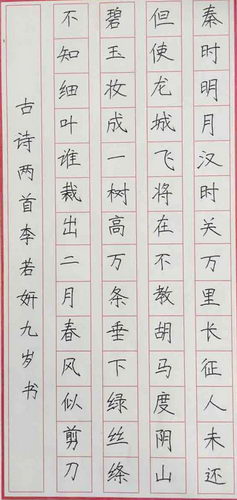 秦时明月汉时关万里长征人未还
但使龙城飞将在不教胡马度阴山
碧玉妆成一树高万条垂下绿丝绦
不知细叶谁裁出二月春风似剪刀
古诗两首李若妍九岁书